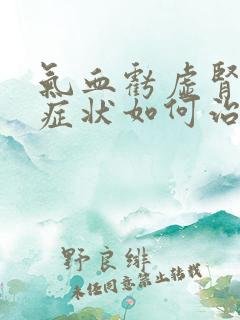 氣血虧虛腎
症状如何治
野良绯
未经同意禁止转载